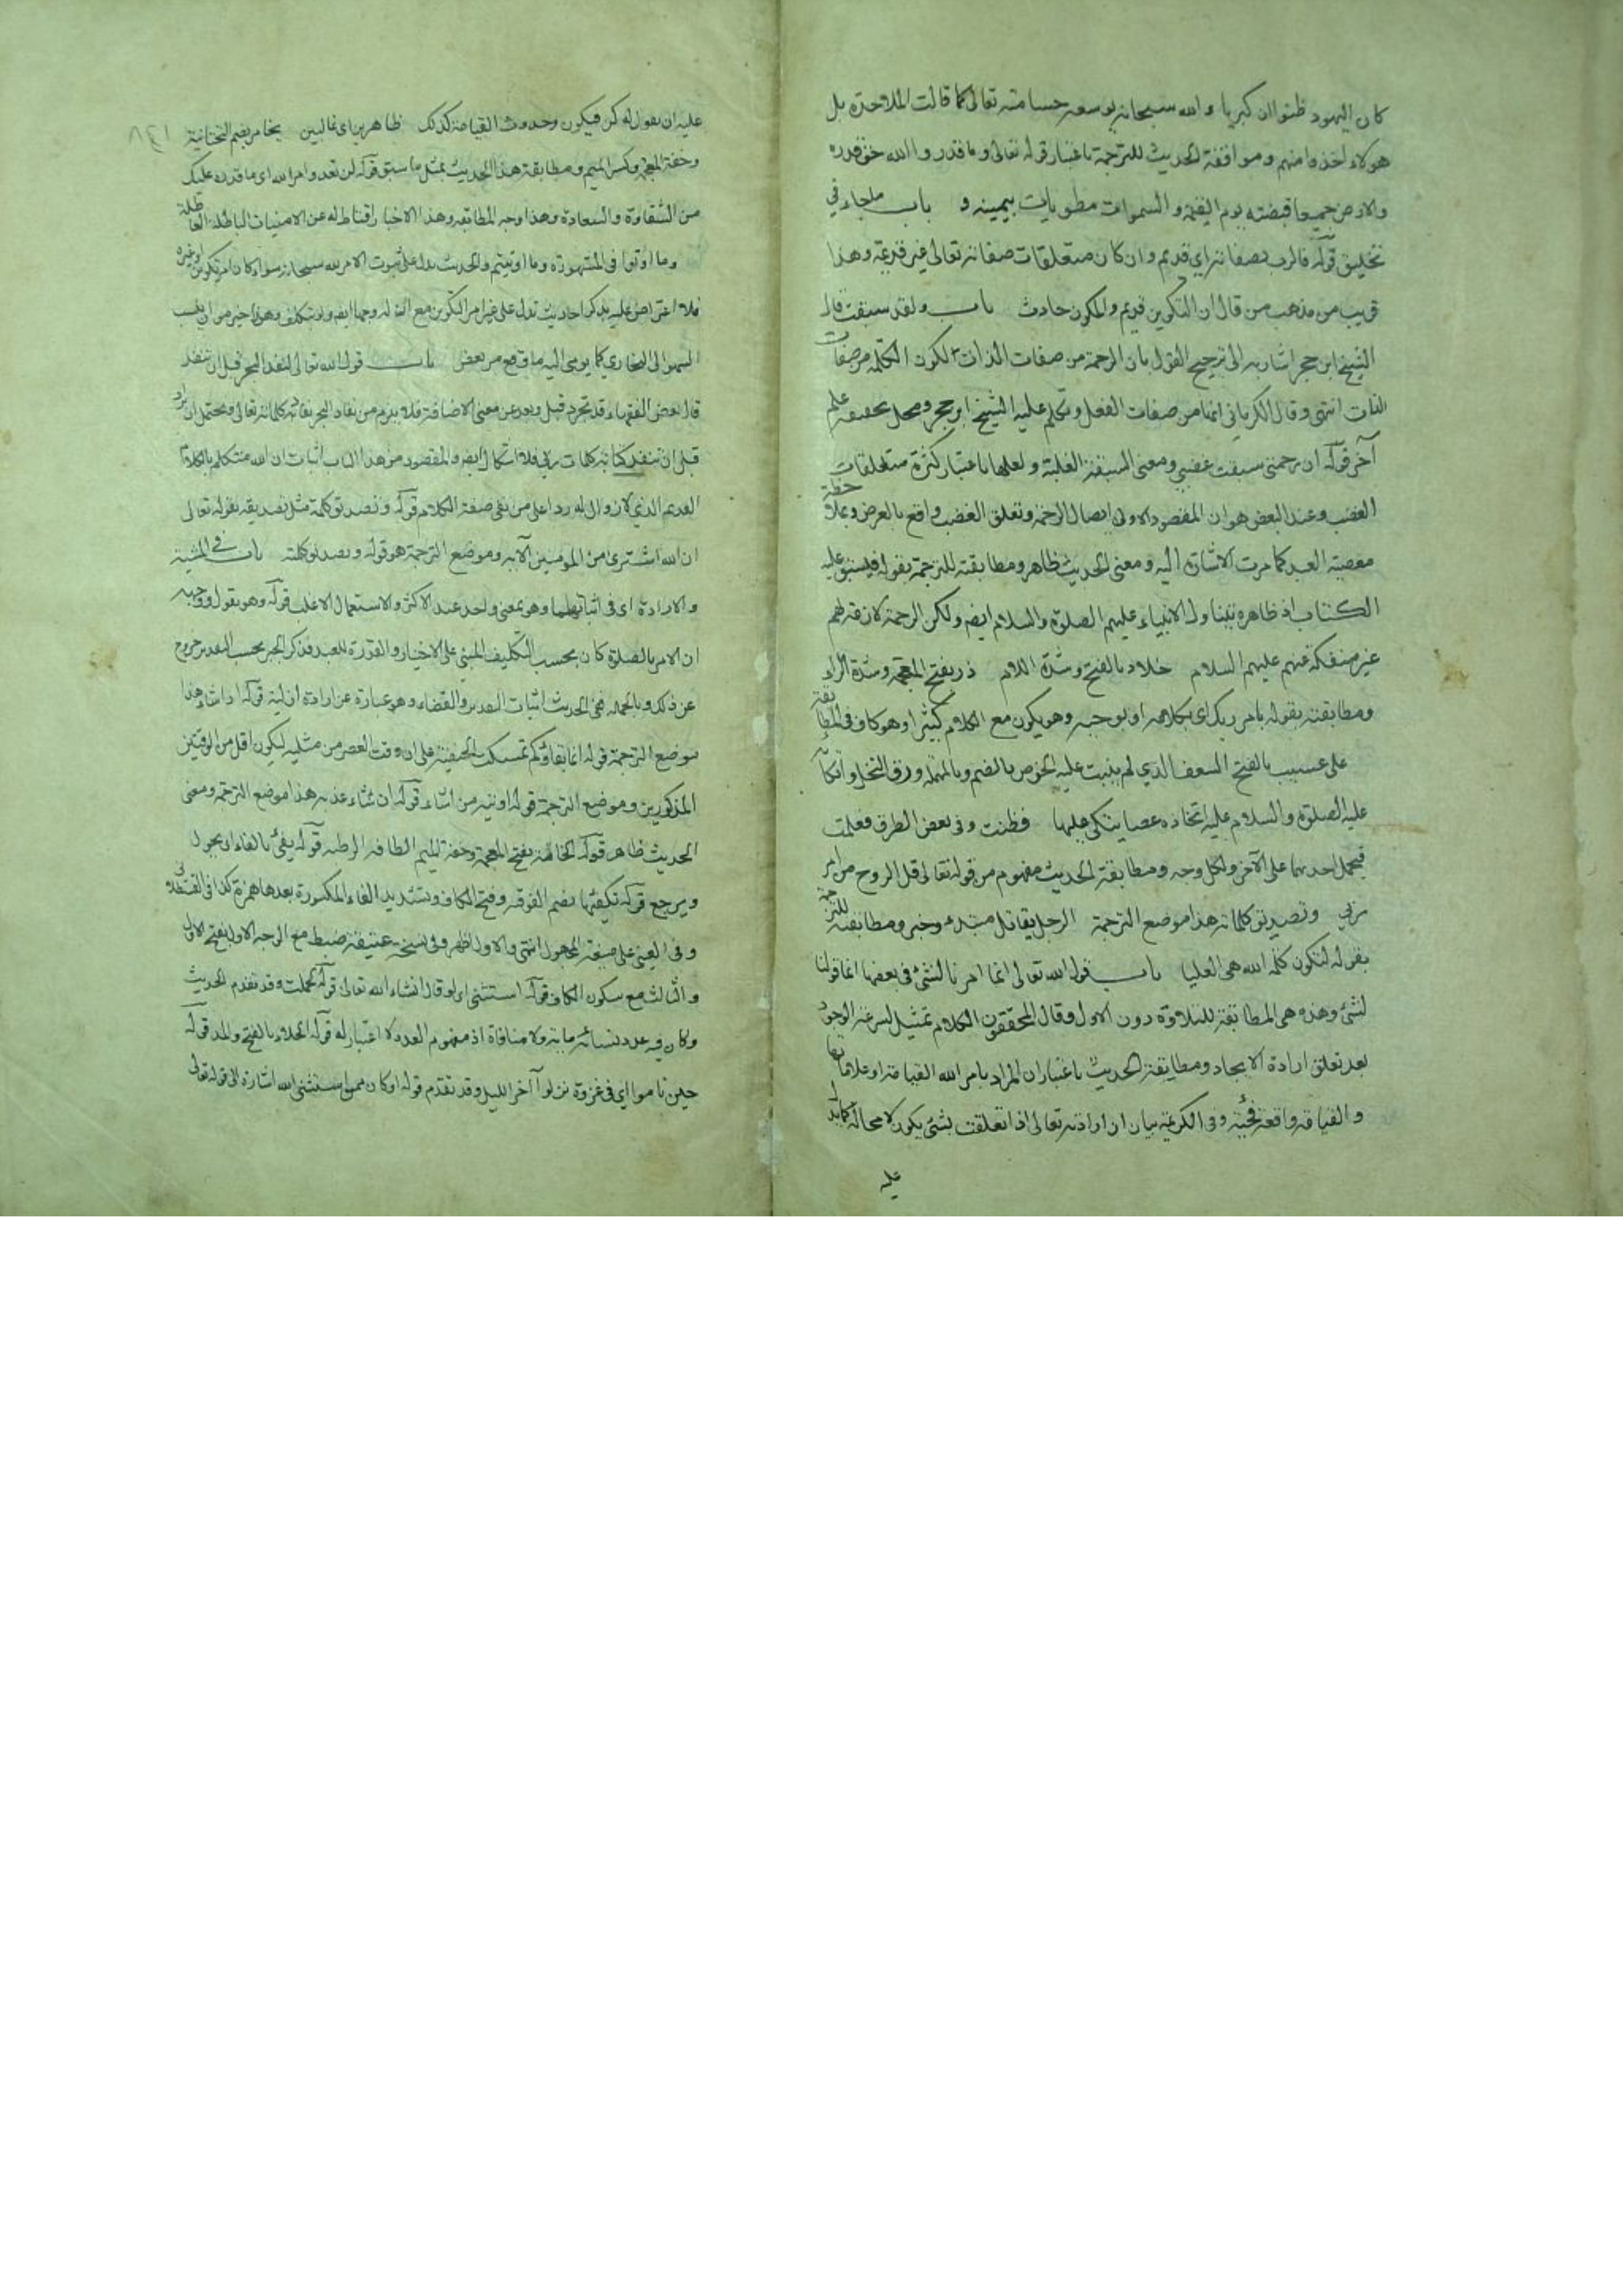 كان اليهود ظنوا ان كبرياء الله سبحانه بوسعه حسا منه تعالى كما قالت الملاحدة بل
هولاء اخذوا منهم وموافقة الحديث للترجمة باعتبار قوله تعالى وما قدروا الله حق قدره
والارض جميعا قبضته يوم القيمة والسموات مطويات بيمينه و باب ما جاء في
تخليق قوله فالرب بصفاته اي قديم وان كان متعلقات صفاته تعالى غير قديمة وهذا
قريب من مذهب من قال ان التكوين قديم والمكون حادث باب ولقد سبقت قال
الشيخ ابن حجر اشار به الى ترجيح القول بان الرحمة من صفات الذات لكون الكلمة من صفات
الذات انتهى وقال الكرماني انما من صفات الفعل وتكلم عليه الشيخ ابن حجر ومحل تحقيقه علم
آخر قوله ان رحمتي سبقت غضبي ومعنى السبقة الغلبة ولعلها باعتبار كثرة متعلقات
الغضب وعند البعض هو ان المقصود الاولي ايصال الرحمة وتعلق الغضب واقع بالعرض وبملاحظة
معصية العبد كما مرت الاشارة اليه ومعنى الحديث ظاهر ومطابقته للترجمة بقوله فيسبق عليه
الكتاب اذ ظاهره يتناول الانبياء عليهم الصلوة والسلام ايضا ولكن الرحمة لازقة لهم
غير منفكة عنهم عليهم السلام خلاد بالفتح وشدة اللام ذر بفتح المعجمة وشدة الراء
ومطابقته بقوله بامر ربك اي بكلامه او بوحيه وهو يكون مع الكلام كثيرا وهو كاف في المطابقة
على عسيب بالفتح السعف الذي لم ينبت عليه الخوص بالضم وبالمهملة ورق النخل واتكاؤه
عليه الصلوة والسلام عليه اتخاذه عصا يتكي عليها فظننت وفي بعض الطرق فعلمت
فيحمل احدهما على الآخر ولكل وجه ومطابقة الحديث مفهوم من قوله تعالى قل الروح من امر
ربي وتصديق كلماته هذا موضع الترجمة الرجل يقاتل مبتدء وخبر ومطابقته للترجمة
بقوله لتكون كلمة الله هي العليا باب قول الله تعالى انما امرنا لشئ في بعضها انما قولنا
لشئ وهذه هي المطابقة للتلاوة دون الاول وقال المحققون الكلام تمثيل لسرعة الوجود
بعد تعلق ارادة الايجاد ومطابقة الحديث باعتبار ان المراد بامر الله القيامة او علاماتها
والقيامة واقعة وفي الكرمية بيان ان ارادته تعالى اذا تعلقت بشئ يكون لا محالة كما يدل
عليه
عليه ان يقول له كن فيكون وحدوث القيامة كذلك ظاهرين اي غالبين يخامر بضم التحتانية
وخفة المعجمة وكسر الميم ومطابقة هذا الحديث بمثل ما سبق قوله لن تعدو امر الله اي ما قدره عليك
من الشقاوة والسعادة وهذا وجه المطابقة وهذا الاخبار اقناط له عن الامنيات الباطلة العاطلة
وما اوتوا في المشهورة وما اوتيتم والحديث يدل على ثبوت الامر لله سبحانه سواء كان امر تكوين او غيره
فلا اعتراض عليه بذكر احاديث تدل على غير امر التكوين مع ان له وجها ايضا ولو بتكلف وهو خير من ان ينسب
السهو الى البخاري كما يومي اليه ما وقع من بعض باب قول الله تعالى لنفد البحر قبل ان تنفد
قال بعض الفقهاء قد تجرد قبل وبعد عن معنى الاضافة فلا يلزم من نفاد البحر نفاد كلماته تعالى ويحتمل ان يراد
قبل ان تنفد كتابة كلمات ربي فلا اشكال ايضا والمقصود من هذا الباب اثبات ان الله متكلم بالكلام
القديم الذي لا زوال له ردا على من نفى صفة الكلام قوله وتصديق كلمة مثل تصديقه بقوله تعالى
ان الله اشترى من المومنين الآية وموضع الترجمة هو قوله وتصديق كلمته باب في المشية
والارادة اي في اثباتهما وهو بمعنى واحد عند الاكثر والاستعمال الاغلب قوله وهو يقول ووجهه
ان الامر بالصلوة كان بحسب التكليف المبني على الاختيار والقدرة للعبد فذكر الجبر بحسب القدر خروج
عن ذلك وبالجملة في الحديث اثبات القدر والقضاء وهو عبارة عن ارادة ازلية قوله اذا شاء هذا
موضع الترجمة قوله انما بقاؤكم تمسكت الحنفية على ان وقت العصر من مثليه ليكون اقل من الوقتين
المذكورين وموضع الترجمة قوله اوتيه من اشاء قوله ان شاء عذبه هذا موضع الترجمة ومعنى
الحديث ظاهر قوله الخامة بفتح المعجمة وخفة الميم الطاقة الرطبة قوله يفئ بالفاء اي يحول
ويرجع قوله تكفئها بضم الفوقية وفتح الكاف وتشديد الفاء المكسورة بعدها همزة كذا في القسطلاني
وفي العيني على صيغة المجهول انتهى والاول اظهر وفي نسخة عتيقة ضبط مع الوجه الاول بفتح الاول
والثالث مع سكون الكاف قوله استثنى اي لو قال انشاء الله تعالى قوله لحملت وقد تقدم الحديث
وكان فيه عدد نسائه مائة ولا منافاة اذ مفهوم العدد لا اعتبار له قوله الجلاء بالفتح والمد قوله
حين ناموا اي في غزوة نزلوا آخر الليل وقد تقدم قوله او كان ممن استثنى الله اشارة الى قوله تعالى